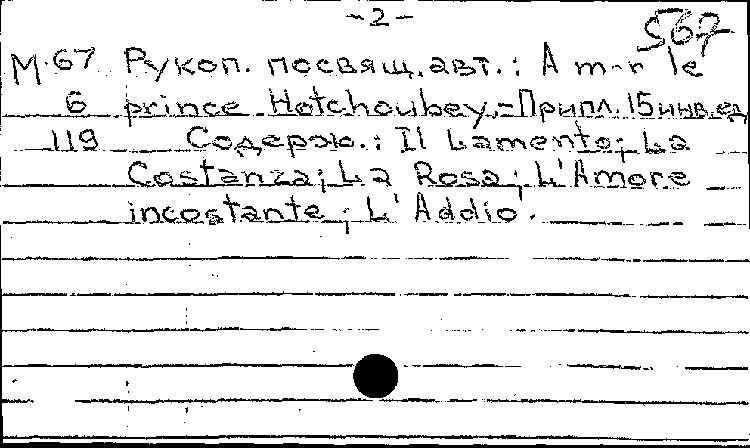 -2-
567
М.67 Рукоп. посвящ. авт.: A m-r le
6 prince Hotchoubey.=Припл. 15 инв.ед
119 Содерж.: Il Lamento; La
Costanza; La Rosa; L'Amore
incostante; L'Addio.